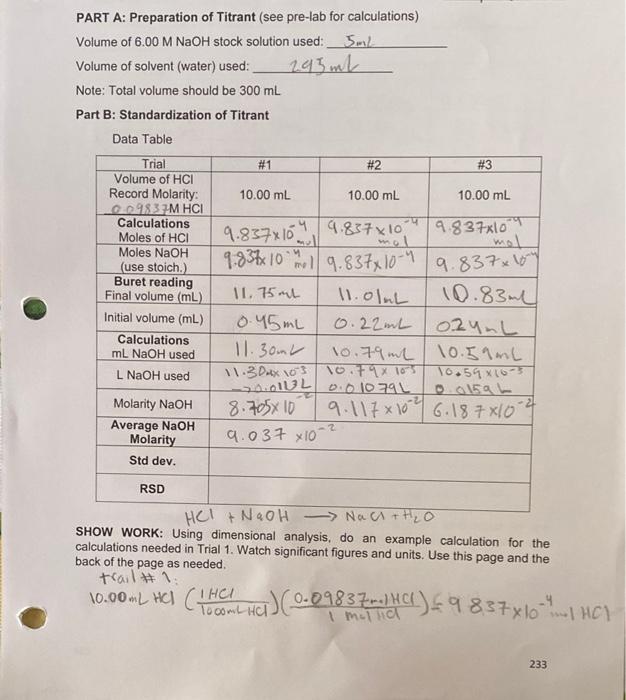 PART A: Preparation of Titrant (see pre-lab for calculations)
Volume of 6.00 M NaOH stock solution used: 5mL
Volume of solvent (water) used: 295mL
Note: Total volume should be 300 mL
Part B: Standardization of Titrant
Data Table
Trial #1 #2 #3
Volume of HCl
Record Molarity: 10.00 mL 10.00 mL 10.00 mL
0.09837M HCl
Calculations
Moles of HCl 9.837x10⁻⁴ mol 9.837x10⁻⁴ mol 9.837x10⁻⁴ mol
Moles NaOH
(use stoich.) 9.837x10⁻⁴ mol 9.837x10⁻⁴ 9.837x10⁻⁴
Buret reading
Final volume (mL) 11.75mL 11.01mL 10.83mL
Initial volume (mL) 0.45mL 0.22mL 0.24mL
Calculations
mL NaOH used 11.30mL 10.79mL 10.59mL
L NaOH used 11.30 x10⁻³ 10.79x10⁻³ 10.59x10⁻³
L 0.01079L 0.0159L
Molarity NaOH 8.705x10⁻² 9.117x10⁻² 6.187x10⁻²
Average NaOH
Molarity 9.037x10⁻²
Std dev.
RSD
HCl + NaOH → NaCl + H₂O
SHOW WORK: Using dimensional analysis, do an example calculation for the
calculations needed in Trial 1. Watch significant figures and units. Use this page and the
back of the page as needed.
trail #1:
10.00mL HCl (1 HCl / 1000mL HCl) (0.09837mol HCl / 1 HCl) = 9.837x10⁻⁴ mol HCl
233